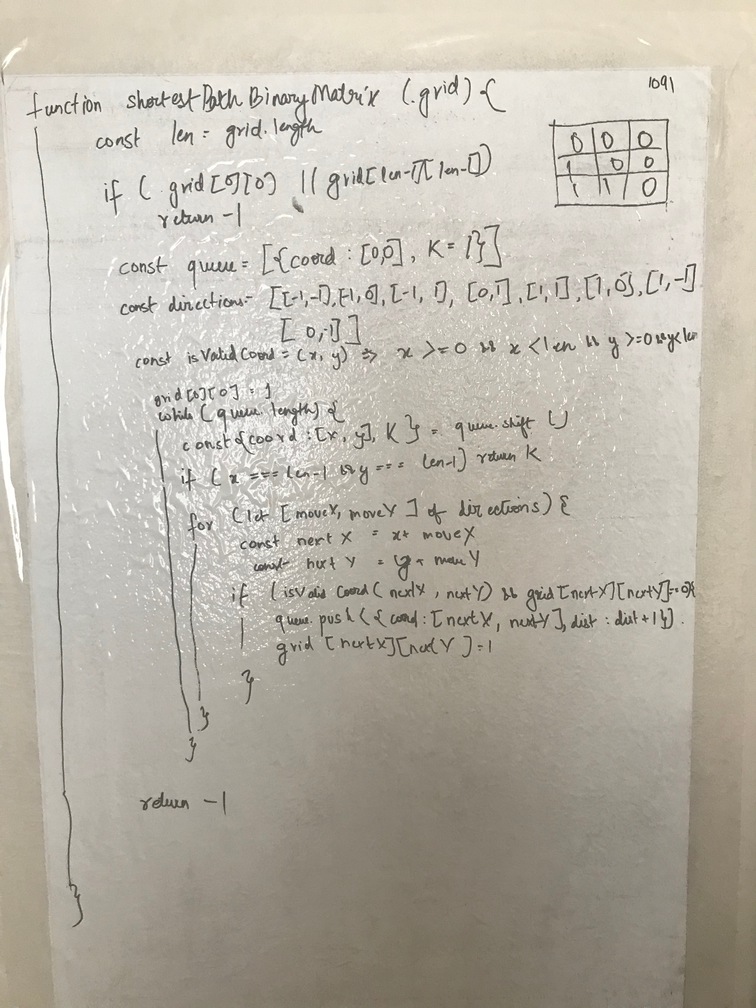 1091
function shortestPathBinaryMatrix (grid) {
const len = grid.length
0 0 0
1 0 0
1 1 0
if ( grid[0][0] || grid[len-1][len-1])
return -1
const queue = [{coord : [0,0], K = 1}]
const directions = [[-1,-1],[-1,0],[-1, 1], [0,1],[1,1],[1,0],[1,-1]
[0,-1]]
const isValidCoord = (x, y) => x >=0 && x < len && y >=0 && y<len
grid[0][0] = 1
while (queue.length) {
const {coord : [x, y], K } = queue.shift ()
if (x === len-1 && y === len-1) return K
for (let [moveX, moveY ] of directions) {
const nextX = x+ moveX
const nextY = y + moveY
if (isValid Coord( nextX, nextY) && grid [nextX][nextY]==0){
queue.push ( { coord: [nextX, nextY], dist : dist +1}) .
grid [nextX][nextY ]=1
}
}
}
return -1
}